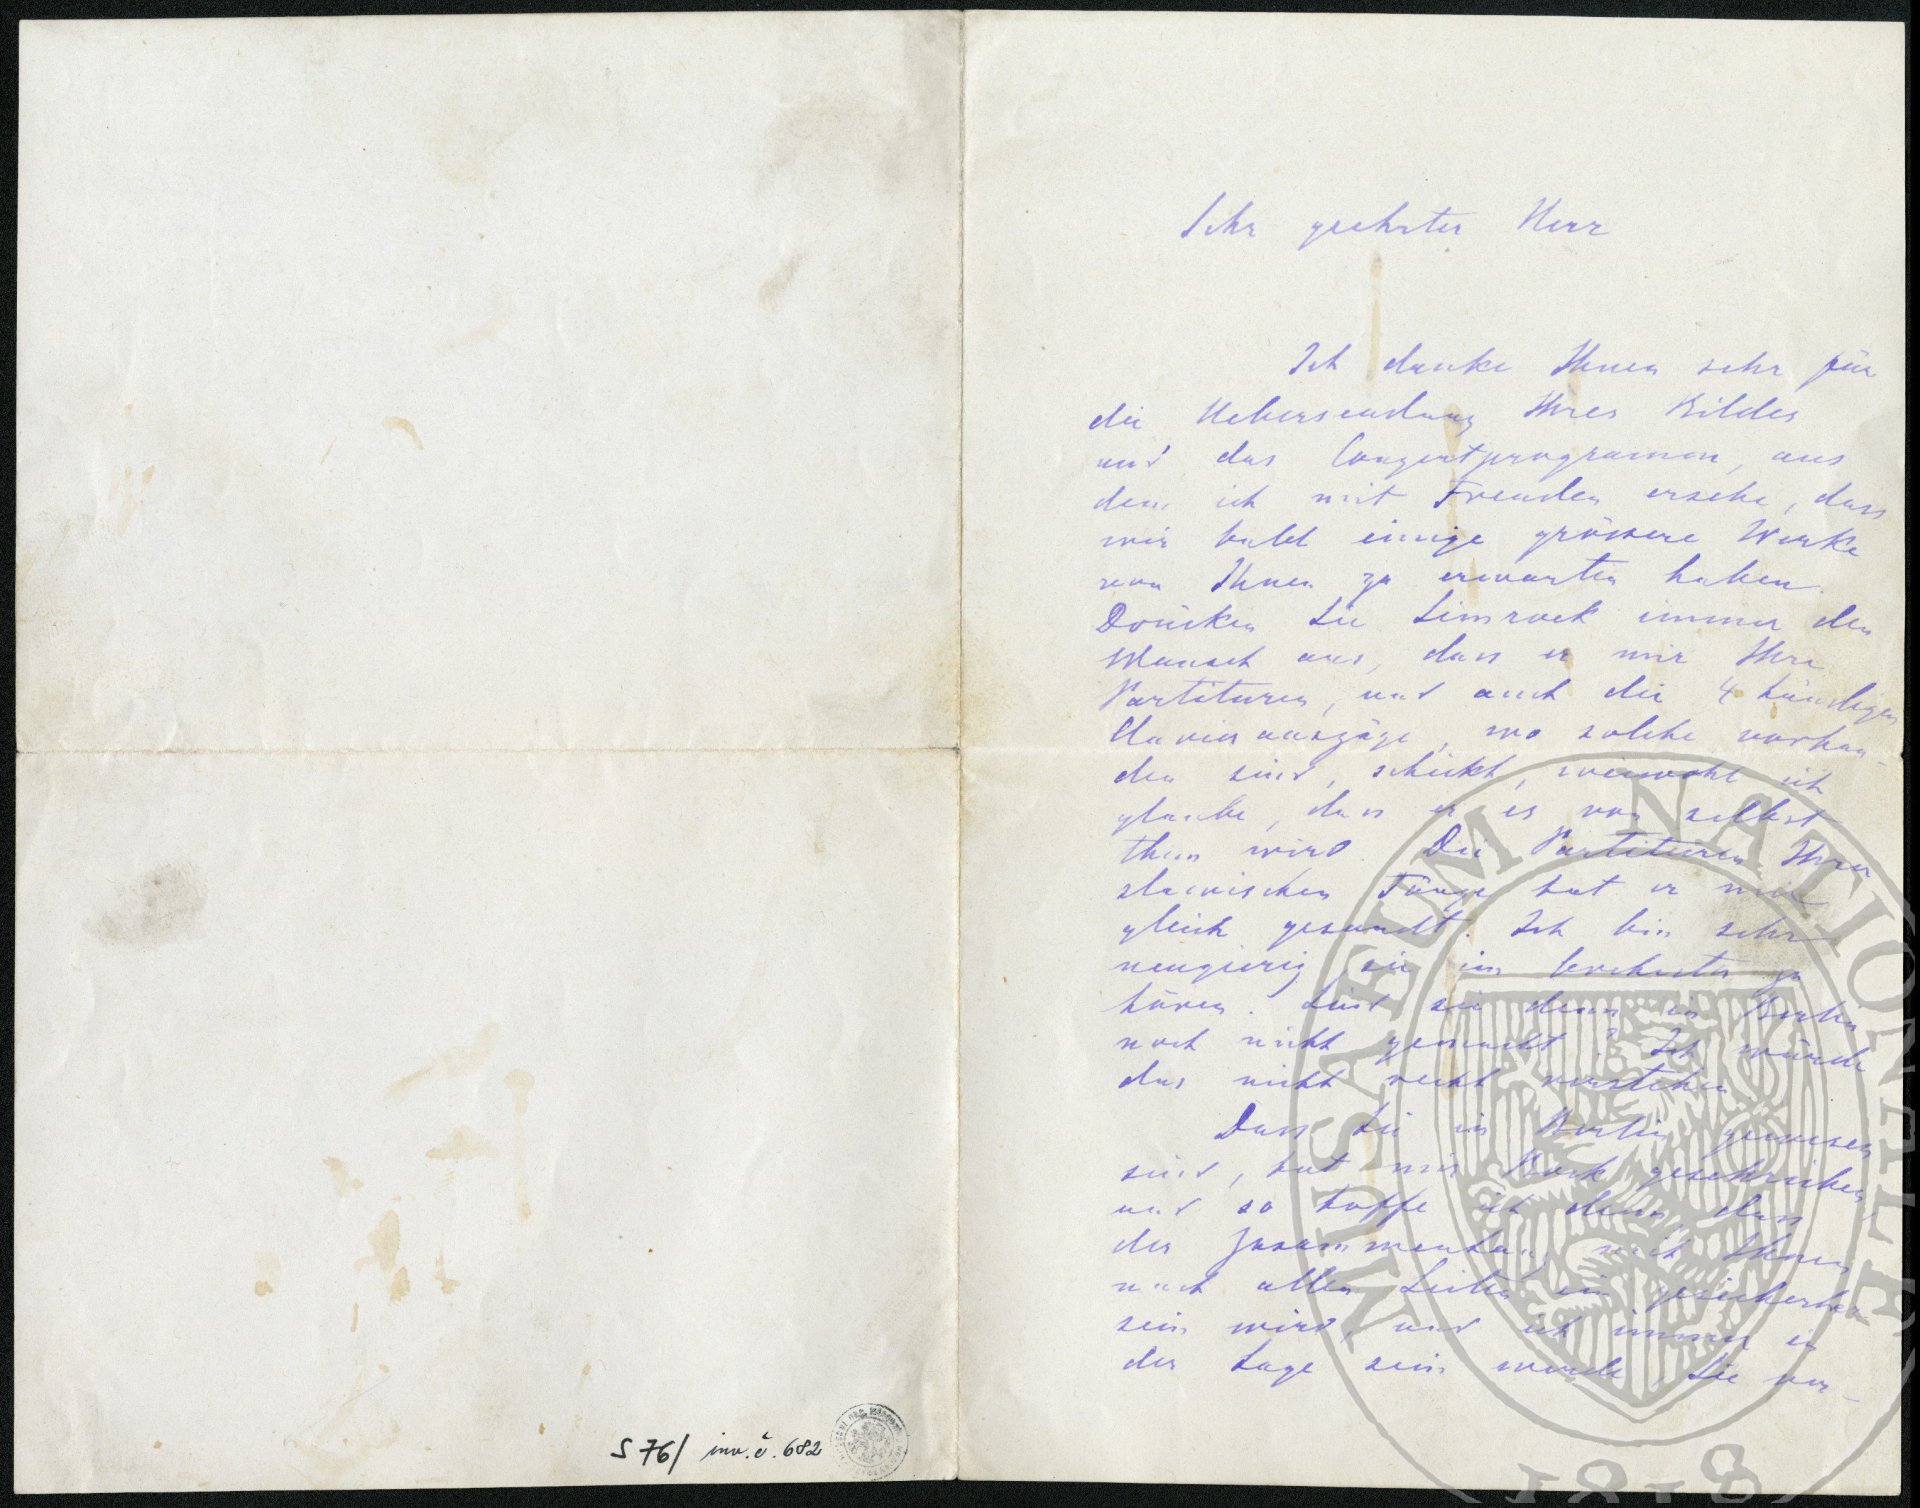 Sehr geehrter Herr
Ich danke Ihnen sehr für
die Uebersendung Ihres Bildes
und das Conzertprogramm, aus
dem ich mit Freuden ersehe, dass
wir bald einige grössere Werke
von Ihnen zu erwarten haben.
Drücken Sie Simrock immer den
Wunsch aus, dass er mir Ihre
Partituren, und auch die 4 händigen
Clavierauszüge, wo solche vorhan-
den sind, schickt, wiewohl ich
glaube, dass er es von selbst
thun wird. Die Partituren Ihrer
slavischen Tänze hat er mir
gleich gesandt. Ich bin sehr
neugierig sie im Orchester zu
hören. Sind sie denn in Berlin
noch nicht gemacht? Ich würde
das nicht recht verstehen
Dass Sie in Berlin gewesen
sind, hat mir Bock geschrieben
und so hoffe ich denn, dass
der Zusammenhang mit Ihnen
nach allen Seiten ein gesicherter
sein wird, und ich immer in
der Lage sein werde, Sie vor-
S 76/ inv. č. 682
MUSAEUM NATIONALE
1818